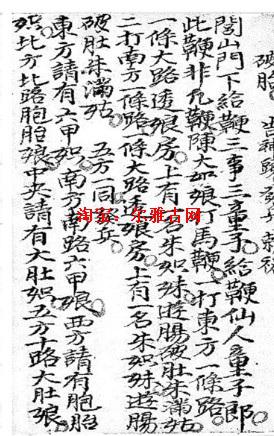 破胎
閭山門下給鞭三事三童子給鞭仙人童子郎
此鞭非凡鞭陳大奶娘丁馬鞭一打東方一條路
一條大路透娘房上有一名朱奶殊遊腸破肚朱滿姑
二打南方一條路一條大路透娘房上有一名朱奶殊遊腸
破肚朱滿姑 五方一同發兵
東方請有六甲奶南方南路六甲娘西方請有胞胎
奶北方北路胞胎娘中央請有大肚奶五方十路大肚娘
淘宝：乐雅古网